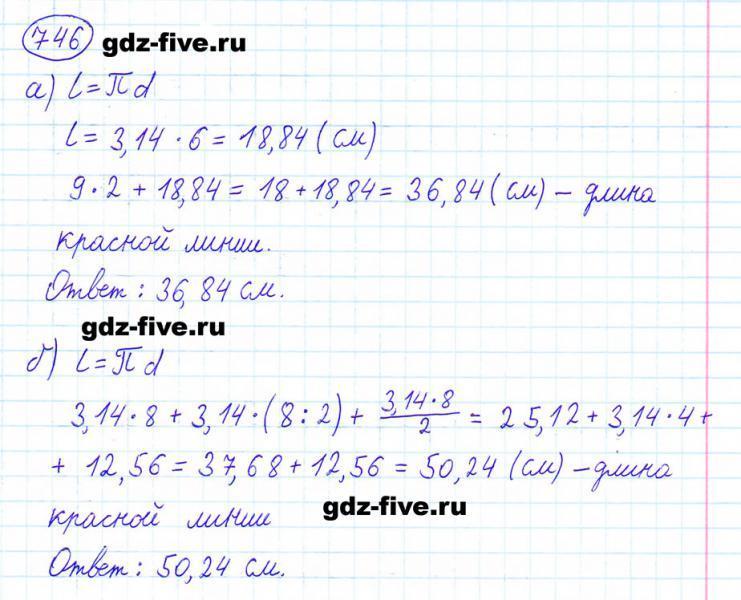 746 gdz-five.ru
а) l = πd
l = 3,14 · 6 = 18,84 (см)
9 · 2 + 18,84 = 18 + 18,84 = 36,84 (см) – длина
красной линии.
Ответ: 36,84 см.
gdz-five.ru
б) l = πd
3,14 · 8 + 3,14 · (8 : 2) + 3,14 · 8 / 2 = 25,12 + 3,14 · 4 +
+ 12,56 = 37,68 + 12,56 = 50,24 (см) – длина
красной линии gdz-five.ru
Ответ: 50,24 см.